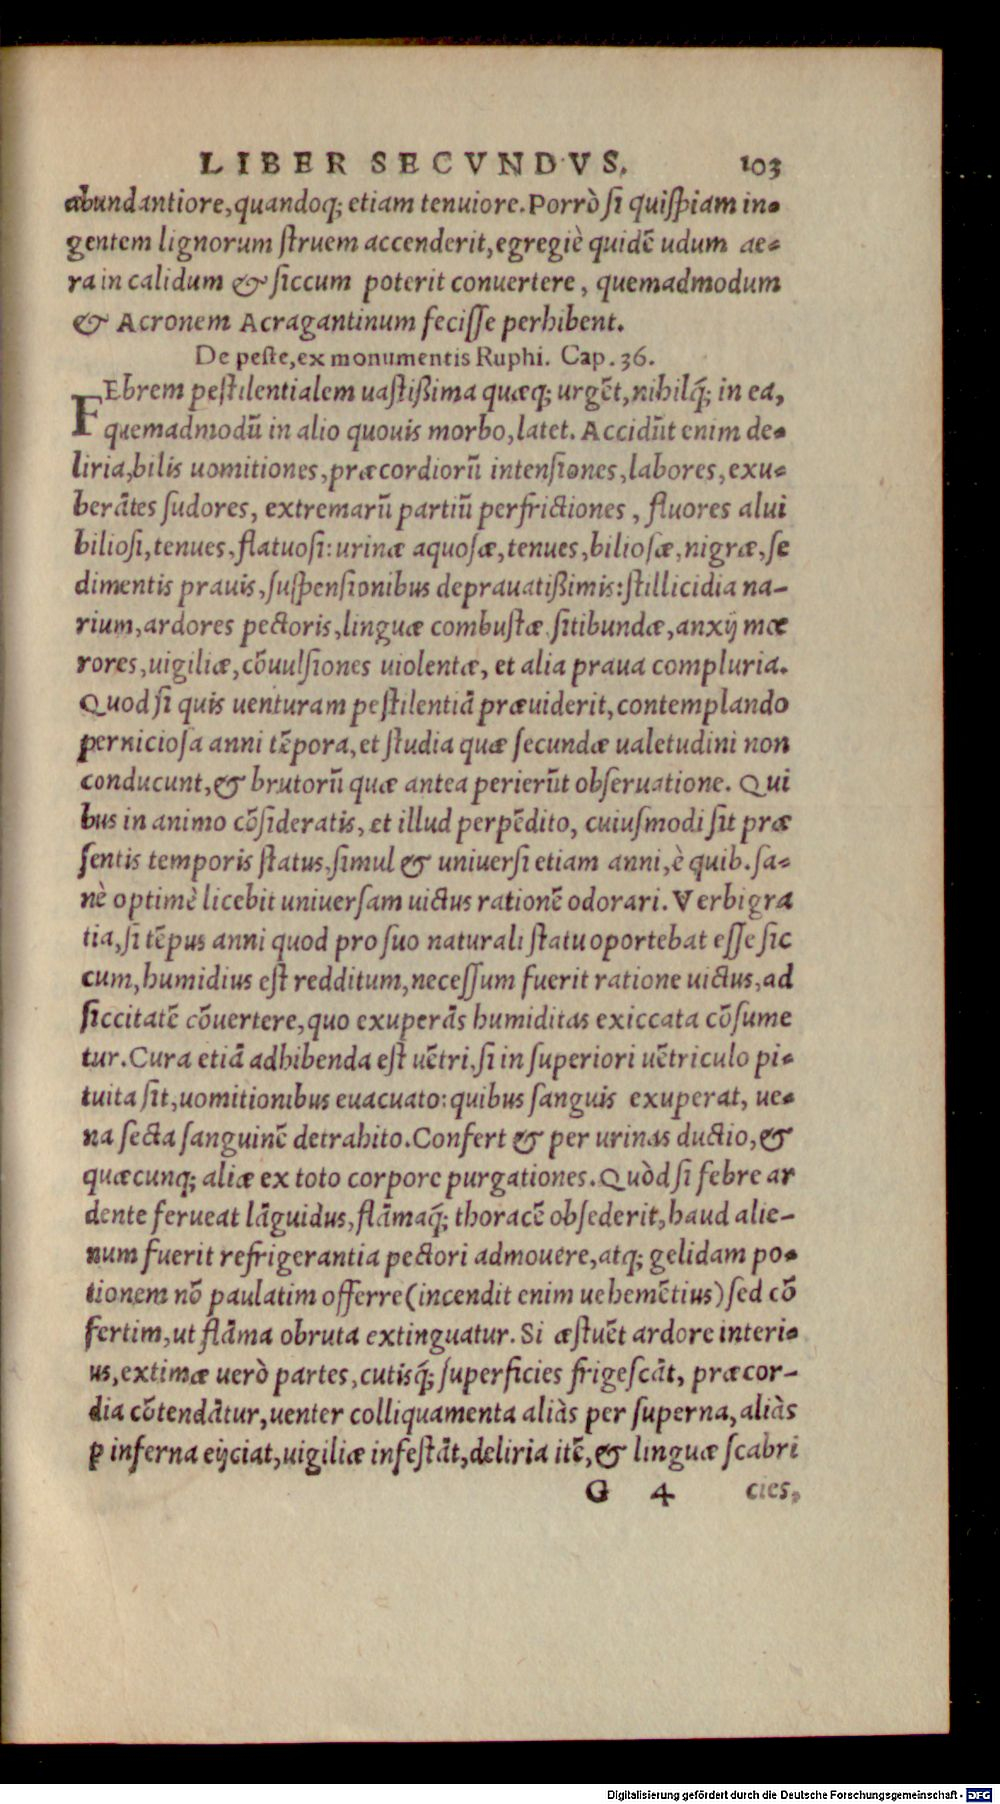 LIBER SECVNDVS. 103
abundantiore, quandoq; etiam tenuiore. Porrò ſi quiſpiam in-
gentem lignorum ſtruem accenderit, egregiè quidē udum ae-
ra in calidum & ſiccum poterit conuertere, quemadmodum
& Acronem Acragantinum feciſſe perhibent.
De peſte, ex monumentis Ruphi. Cap. 36.
FEbrem peſtilentialem uaſtißima quæq; urgēt, nihilq́; in ea,
quemadmodū in alio quouis morbo, latet. Accidūt enim de-
liria, bilis uomitiones, præcordiorū intenſiones, labores, exu-
berātes ſudores, extremarū partiū perfrictiones, fluores alui
bilioſi, tenues, flatuoſi: urinæ aquoſæ, tenues, bilioſæ, nigræ, ſe
dimentis prauis, ſuſpenſionibus deprauatißimis: ſtillicidia na-
rium, ardores pectoris, linguæ combuſtæ, ſitibundæ, anxij mœ
rores, uigiliæ, cōuulſiones uiolentæ, et alia praua compluria.
Quod ſi quis uenturam peſtilentiā præuiderit, contemplando
pernicioſa anni tēpora, et ſtudia quæ ſecundæ ualetudini non
conducunt, & brutorū quæ antea perierūt obſeruatione. Qui
bus in animo cōſideratis, et illud perpēdito, cuiuſmodi ſit præ
ſentis temporis ſtatus, ſimul & uniuerſi etiam anni, è quib. ſa-
nè optimè licebit uniuerſam uictus rationē odorari. Verbigra
tia, ſi tēpus anni quod pro ſuo naturali ſtatu oportebat eſſe ſic
cum, humidius eſt redditum, neceſſum fuerit ratione uictus, ad
ſiccitatē cōuertere, quo exuperās humiditas exiccata cōſume
tur. Cura etiā adhibenda eſt uētri, ſi in ſuperiori uētriculo pi-
tuita ſit, uomitionibus euacuato: quibus ſanguis exuperat, ue-
na ſecta ſanguinē detrahito. Confert & per urinas ductio, &
quæcunq; aliæ ex toto corpore purgationes. Quòd ſi febre ar
dente ferueat lāguidus, flāmaq́; thoracē obſederit, haud alie-
num fuerit refrigerantia pectori admouere, atq; gelidam po-
tionem nō paulatim offerre (incendit enim uehemētius) ſed cō
fertim, ut flāma obruta extinguatur. Si æſtuēt ardore interi-
us, extimæ uerò partes, cutisq́; ſuperficies frigeſcāt, præcor-
dia cōtendātur, uenter colliquamenta aliàs per ſuperna, aliàs
ꝑ inferna eijciat, uigiliæ infeſtāt, deliria itē, & linguæ ſcabri
G 4 cies,
Digitalisierung gefördert durch die Deutsche Forschungsgemeinschaft - DFG